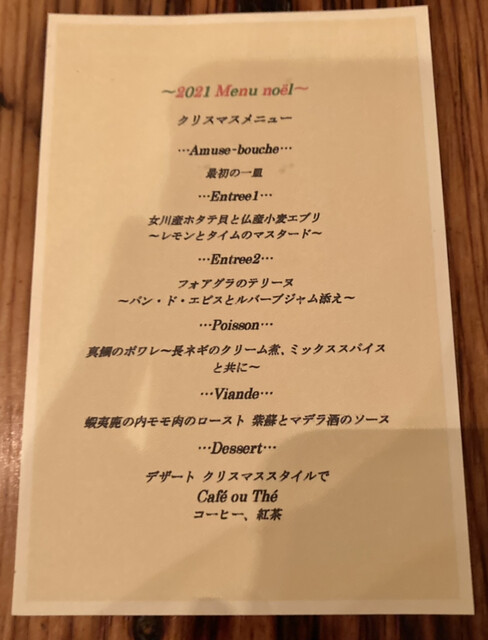 ～2021 Menu noël～
クリスマスメニュー
…Amuse-bouche…
最初の一皿
…Entree1…
女川産ホタテ貝と仏産小麦エブリ
～レモンとタイムのマスタード～
…Entree2…
フォアグラのテリーヌ
～パン・ド・エピスとルバーブジャム添え～
…Poisson…
真鯛のポワレ～長ネギのクリーム煮、ミックススパイス
と共に～
…Viande…
蝦夷鹿の内モモ肉のロースト 紫蘇とマデラ酒のソース
…Dessert…
デザート クリスマススタイルで
Café ou Thé
コーヒー、紅茶